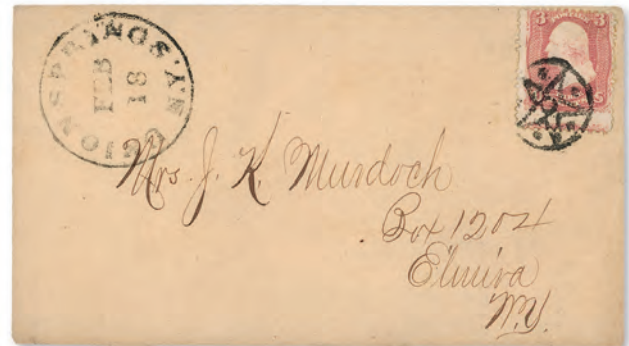 UNION SPRINGS. N.Y.
FEB
18
3 3
Mrs. J. K. Murdoch
Box 1204
Elmira
N.Y.